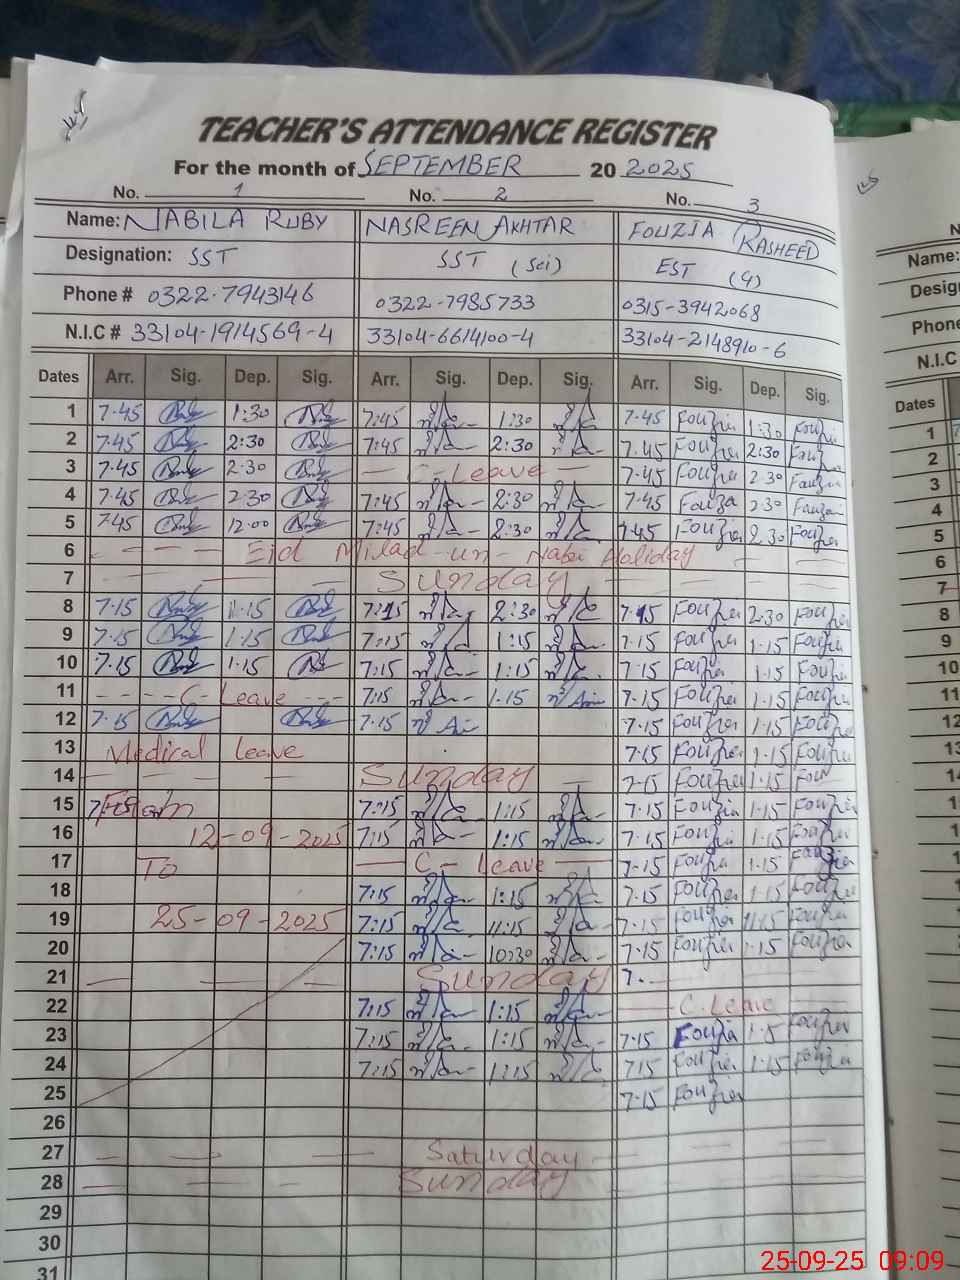 TEACHER'S ATTENDANCE REGISTER
For the month of SEPTEMBER 20 2025
No. 1 No. 2 No. 3
Name: NABILA RUBY NASREEN AKHTAR FOUZIA RASHEED
Designation: SST SST (Sci) EST (9)
Phone # 0322-7943146 0322-7985733 0315-3942068
N.I.C # 33104-1914569-4 33104-6614100-4 33104-2148910-6
Dates Arr. Sig. Dep. Sig. Arr. Sig. Dep. Sig. Arr. Sig. Dep. Sig.
1 7.45 1:30 7:45 1:30 7.45 Fouzia 1:30 Fouzia
2 7.45 2:30 7:45 2:30 7.45 Fouzia 2:30 Fouzia
3 7.45 2.30 — C-Leave — 7.45 Fouzia 2.30 Fouzia
4 7.45 2.30 7:45 2:30 7.45 Fouzia 2.30 Fouzia
5 7.45 12.00 7:45 2:30 7.45 Fouzia 2.30 Fouzia
6 Eid Milad-un-Nabi Holiday
7 Sunday
8 7.15 11.15 2:30 Fouzia 2.30 Fouzia
9 7.15 1.15 7:15 1:15 7.15 Fouzia 1.15 Fouzia
10 7.15 1.15 7:15 1:15 7.15 Fouzia 1.15 Fouzia
11 C-Leave 7:15 1.15 7.15 Fouzia 1.15 Fouzia
12 7.15 7.15 7.15 Fouzia 1.15 Fouzia
13 Medical leave 7.15 Fouzia 1.15 Fouzia
14 Sunday 7.15 Fouzia 1.15 Fou
15 From 7:15 1:15 7.15 Fouzia 1.15 Fouzia
16 12-09-2025 7:15 1:15 7.15 Fouzia 1.15 Fouzia
17 To — C-Leave — 7.15 Fouzia 1.15 Fouzia
18 7:15 1:15 7.15 Fouzia 1.15 Fouzia
19 25-09-2025 7:15 11:15 7.15 Fouzia 11.15 Fouzia
20 7:15 10:30 7.15 Fouzia 1.15 Fouzia
21 Sunday 7.
22 7:15 1:15 C.Leave
23 7:15 1:15 7.15 Fouzia 1.15 Fouzia
24 7:15 1:15 7.15 Fouzia 1.15 Fouzia
25 7.15 Fouzia
26
27 Saturday
28 Sunday
29
30
31
Name:
Phone
N.I.C
Dates
1
2
3
4
5
6
7
8
9
10
11
12
13
14
25-09-25 09:09